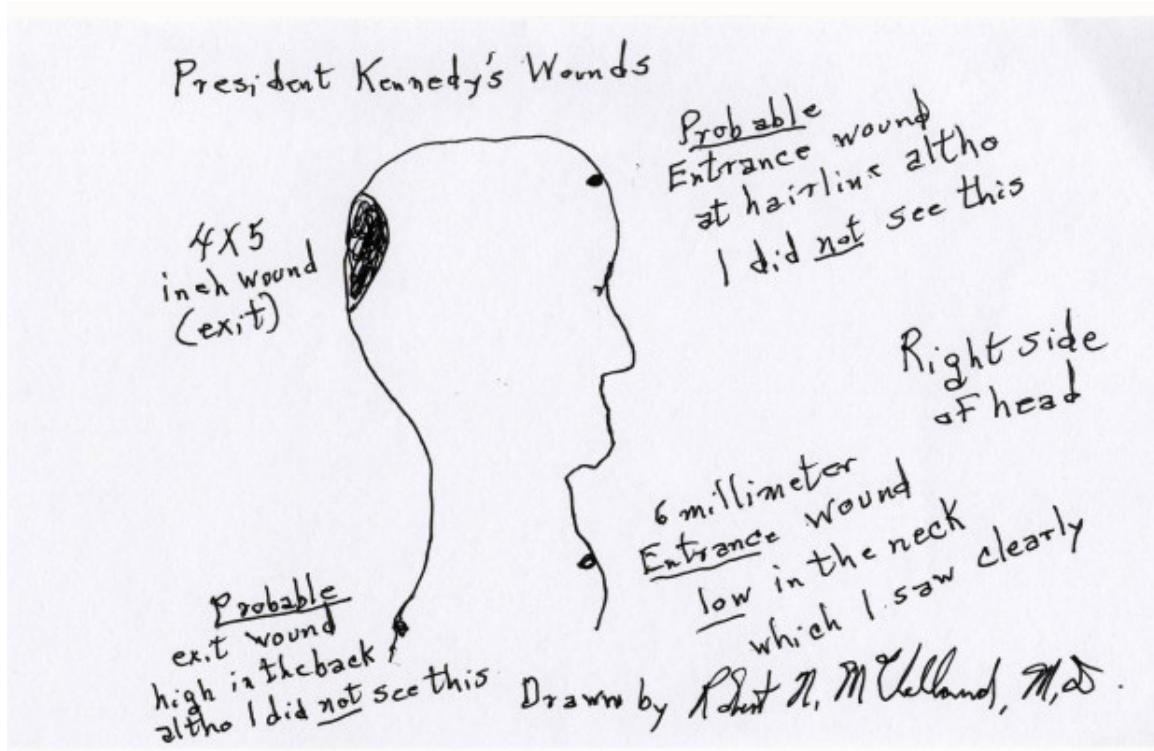 President Kennedy's Wounds
Probable
Entrance wound
at hairline altho
I did not see this
4X5
inch wound
(exit)
Right side
of head
6 millimeter
Entrance wound
low in the neck
which I saw clearly
Probable
exit wound
high in the back
altho I did not see this
Drawn by Robert N. McClelland, M.D.